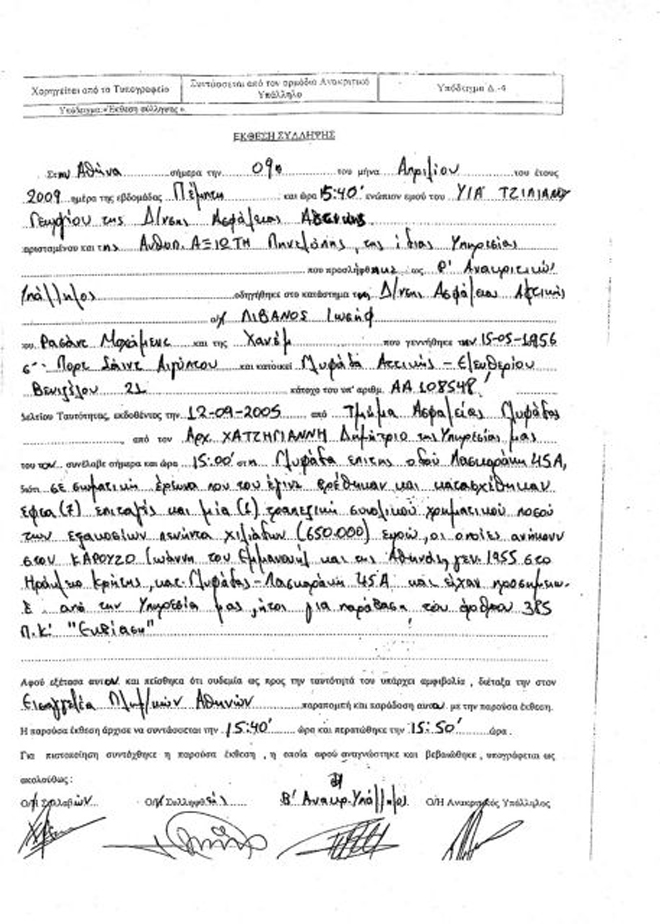 Χορηγείται από το Τυπογραφείο
Συντάσσεται από τον αρμόδιο Ανακριτικό Υπάλληλο
Υπόδειγμα Δ.-4
Υπόδειγμα: «Έκθεση σύλληψης».
ΕΚΘΕΣΗ ΣΥΛΛΗΨΗΣ
Στην Αθήνα σήμερα την 09η του μήνα Απριλίου του έτους
2009 ημέρα της εβδομάδας Πέμπτη και ώρα 15:40' ενώπιον εμού του Υ/Α΄
Γεωργίου της Δ/νσης Ασφάλειας Αττικής
παρισταμένου και της Ανθυπ. ΑΞΙΩΤΗ Πηνελόπης, της ίδιας Υπηρεσίας
που προσλήφθηκε ως Β' Ανακριτικός
Υπάλληλος οδηγήθηκε στο κατάστημα της Δ/νσης Ασφάλειας Αττικής
ο/η ΛΙΒΑΝΟΣ Ιωσήφ
του Ρασάντ Μοχάμεντ και της Χανέμ που γεννήθηκε την 15-05-1956
Πορτ Σάιντ Αιγύπτου και κατοικεί Γλυφάδα Αττικής - Ελευθερίου
Βενιζέλου 21 κάτοχο του υπ' αριθμ. ΑΑ 108548
Δελτίου Ταυτότητας, εκδοθέντος την 12-09-2005 από Τμήμα Ασφαλείας Γλυφάδας
, από τον Αρχ. ΧΑΤΖΗΓΙΑΝΝΗ Δημήτριο της Υπηρεσίας μας
του τον συνέλαβε σήμερα και ώρα 15:00' στη Γλυφάδα επί της οδού Λασκαράκη 45Α,
διότι σε σωματική έρευνα που του έγινε βρέθηκαν και κατασχέθηκαν
εφτά (7) επιταγές και μία (1) τραπεζική συνολικού χρηματικού ποσού
των εξακοσίων πενήντα χιλιάδων (650.000) ευρώ, οι οποίες ανήκουν
στον ΚΑΡΟΥΖΟ Ιωάννη του Εμμανουήλ και της Αθηνάς, γεν. 1955 στο
Ηράκλειο Κρήτης, κατ. Γλυφάδας - Λασκαράκη 45Α και είχαν προσημειω-
από την Υπηρεσία μας, ήτοι για παράβαση του άρθρου 385
Π.Κ. "Εκβίαση"
Αφού εξέτασα αυτόν και πείσθηκα ότι ουδεμία ως προς την ταυτότητά του υπάρχει αμφιβολία, διέταξα την στον
Εισαγγελέα Πλημ/κών Αθηνών παραπομπή και παράδοση αυτού με την παρούσα έκθεση.
Η παρούσα έκθεση άρχισε να συντάσσεται την 15:40' ώρα και περατώθηκε την 15:50' ώρα.
Για πιστοποίηση συντάχθηκε η παρούσα έκθεση, η οποία αφού αναγνώστηκε και βεβαιώθηκε, υπογράφεται ως
ακολούθως:
Ο/Η Συλλαβών Ο/Η Συλληφθείς Β' Ανακρ. Υπάλληλος Ο/Η Ανακριτικός Υπάλληλος